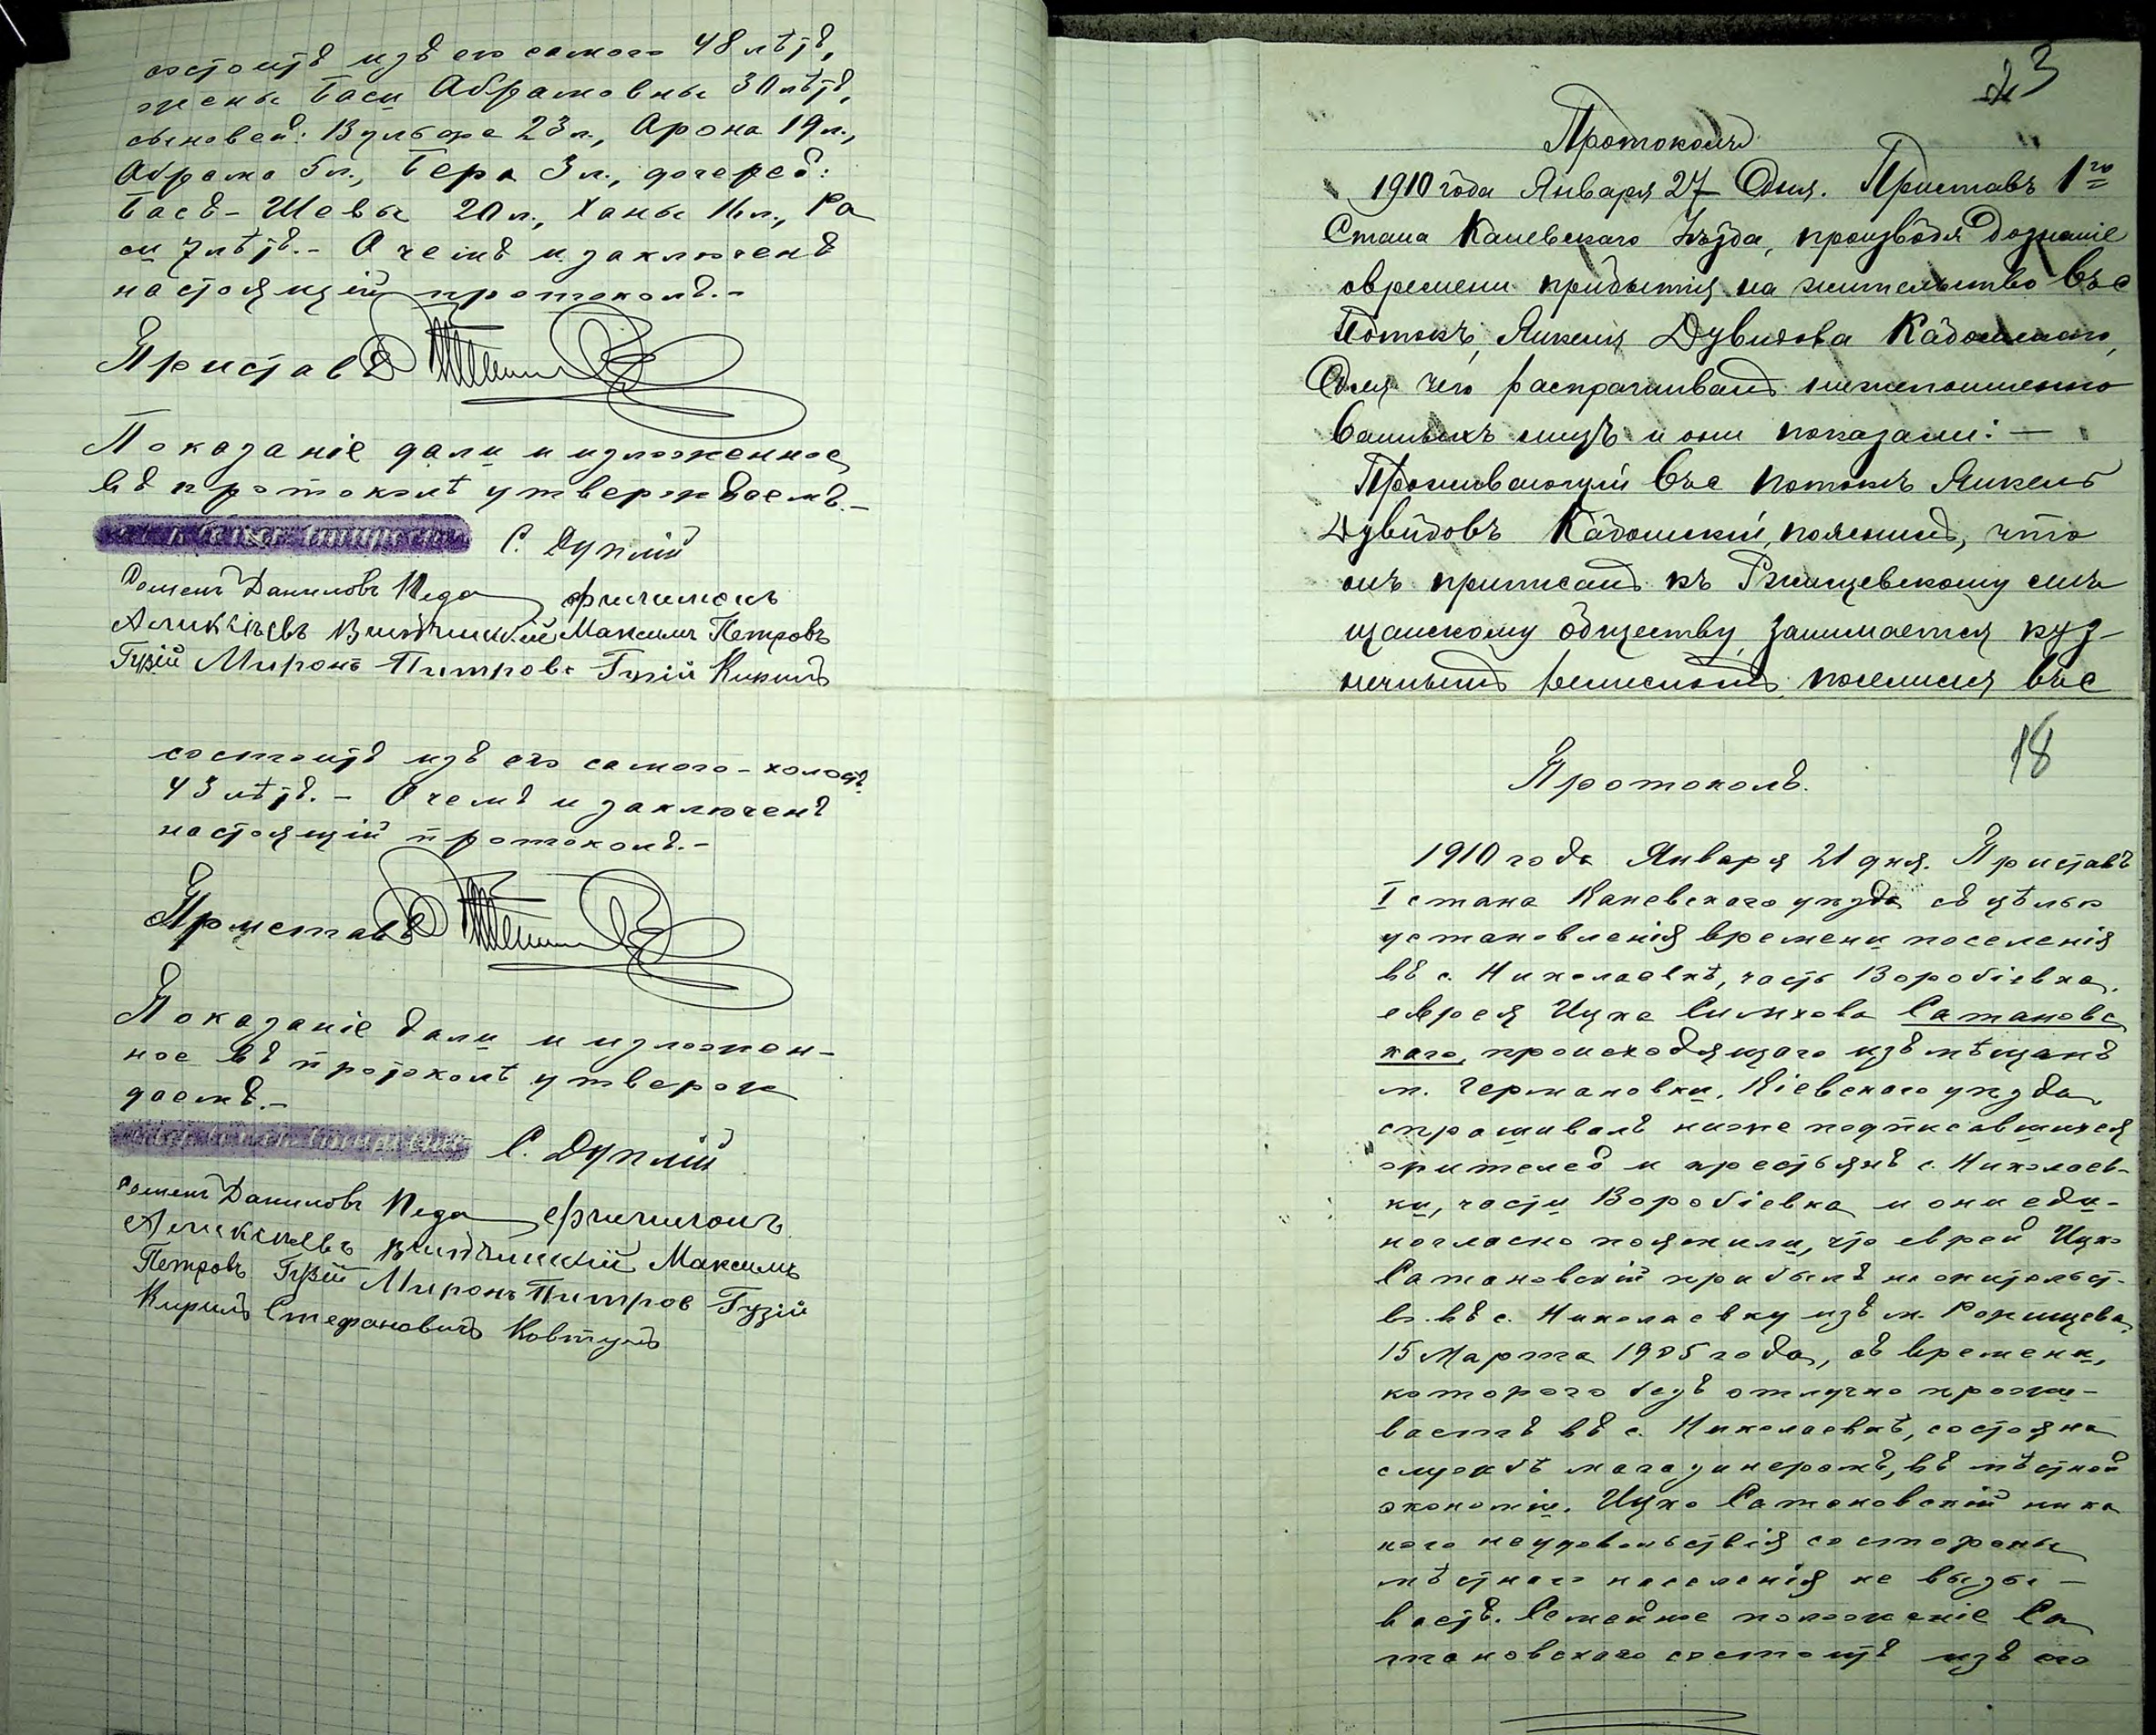 состоитъ изъ его самого 48 лѣтъ,
жены Баси Абрамовны 30 лѣтъ,
сыновей: Вульфа 23 л., Арона 19 л.,
Абрама 5 л., Бера 3 л., дочерей:
Бась-Шевы 20 л., Ханы 16 л., Ра
си 7 лѣтъ.- О чемъ и заключенъ
настоящій протоколъ.-
Приставъ
Показаніе дали и изложенное
въ протоколѣ утверждаемъ.-
С. Дуплій
Семенъ Даниловъ Педа Филимонъ
Аликсіевъ Максимъ Петровъ
Гузій Миронъ Питровъ Гузій Кирилъ
состоитъ изъ его самого - холостъ
43 лѣтъ.- О чемъ и заключенъ
настоящій протоколъ.-
Приставъ
Показаніе дали и изложен-
ное въ протоколѣ утверж
даемъ.-
С. Дуплій
Семенъ Даниловъ Педа Филимонъ
Аликсіевъ Максимъ
Петровъ Гузій Миронъ Питров Гузій
Кирилъ Стефановичъ Ковтунъ
23
Протоколъ
1910 года Января 27 Дня. Приставъ 1го
Стана Каневскаго уѣзда, производя дознаніе
овремени прибытія на жительство въ с
Потокъ, Янкеля Дувидова Кадошскаго,
Для чего распрашивалъ нижепоимено
ванныхъ лицъ и они показали: —
Проживающій въ с Потокъ Янкель
Дувидовъ Кадошскій, пояснилъ, что
онъ приписанъ къ Ржищевскому мѣ
щанскому обществу, занимается куз-
нечнымъ ремисломъ, поселился въ с
18
Протоколъ.
1910 года Января 21 дня. Приставъ
I стана Каневскаго уѣзда съ цѣлью
установленія времени поселенія
въ с. Николаевкѣ, часть Воробіевка,
еврея Ицка Симхова Сатановс
каго, происходящаго изъ мѣщанъ
м. Германовки, Кіевскаго уѣзда
спрашивалъ нижеподписавшихся
жителей и крестьянъ с. Николаев-
ки, части Воробіевка и они еди-
ногласно пояснили, что еврей Ицко
Сатановскій прибылъ на жительст-
во въ с. Николаевку изъ м. Ржищева
15 Марта 1905 года, съ времени,
котораго безъ отлучно прожи-
ваетъ въ с. Николаевкѣ, состоя на
службѣ магазинеромъ, въ мѣстной
экономіи. Ицко Сатановскій ника
кого неудовольствія со стороны
мѣстнаго населенія не вызы-
ваетъ. Семейное положеніе Са
тановскаго состоитъ изъ его